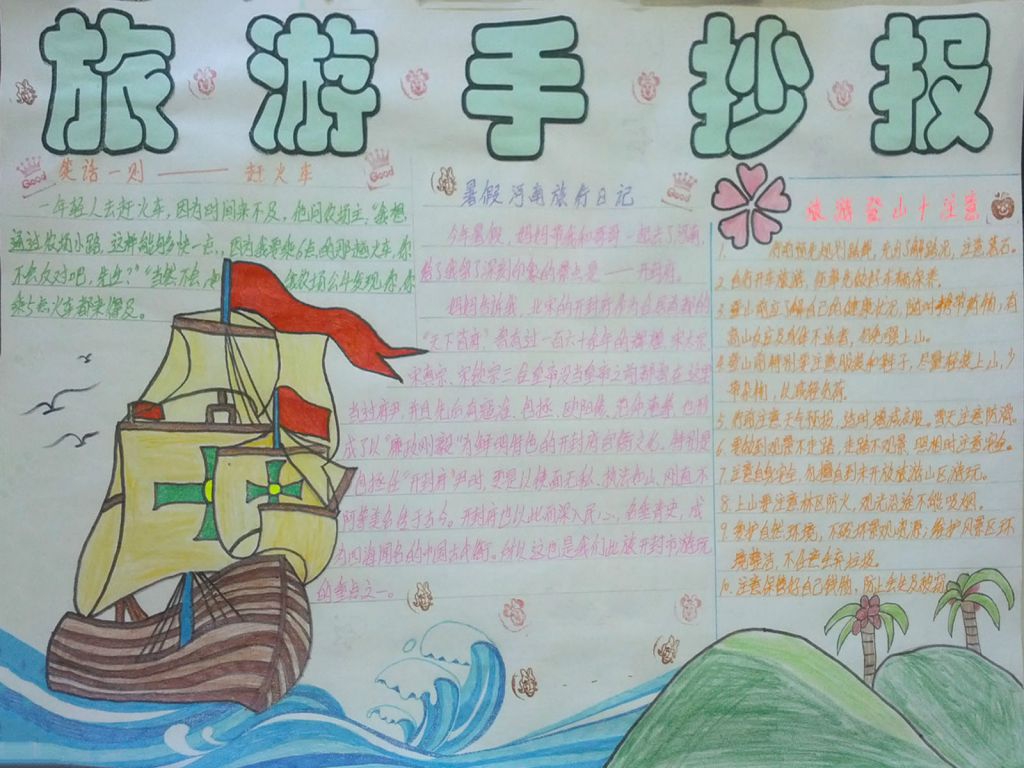 旅游手抄报
Good
笑话一则——赶火车
Good
一年轻人去赶火车,因为时间来不及,他问农场主,"我想
通过农场小路,这样能够快一点,因为我要乘6点的那趟火车,你
不会反对吧,先生?""当然不会,
我农场公牛发现你,你
乘5点火车都来得及。
暑假河南旅行日记
Good
今年暑假,妈妈带我和哥哥一起去了河南,
给了我留下深刻印象的景点是——开封府。
妈妈告诉我,北宋的开封府
"天下首府"
宋真宗、宋钦宗三位皇帝没当皇帝之前都曾在这里
当过府尹,并且先后有寇准、包拯、欧阳修、范仲淹等,也形
成了以"廉政刚毅"为鲜明特色的开封府
包拯任"开封府"尹时,更是以铁面无私、执法如山、刚直不
阿等美名传于古今。开封府也以此而深入民心、名垂青史,成
为四海闻名的中国古
的重点之一。
旅游登山十注意
1. 行前预先规划路线,充分了解路况,注意落石。
2. 自行开车旅游,应事先做好车辆保养。
3. 登山前应了解自己的健康状况,随时携带药物,有
高山反应及身体不适者,避免强上山。
4. 登山前特别要注意服装和鞋子,尽量轻装上山,少
带杂物,以减轻负荷。
5. 行前注意天气预报,适时增减衣服。雪天注意防滑。
6. 要做到观景不走路,走路不观景,照相时注意安全。
7. 注意自身安全,勿擅自到未开放旅游山区游玩。
8. 上山要注意林区防火,观光沿途不能吸烟。
9. 爱护自然环境,不破坏景观资源;维护风景区环
境整洁,不任意丢弃垃圾。
10. 注意保管好自己钱物,防止丢失及被窃